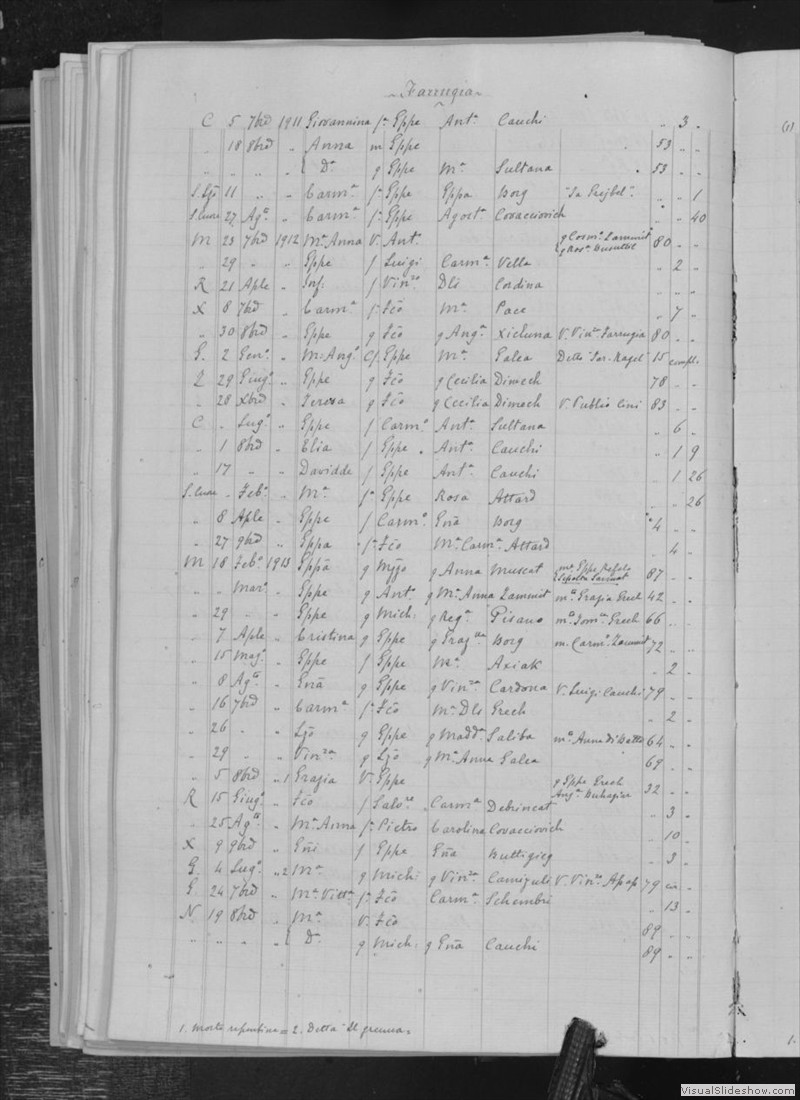 Farrugia
C 5 7bre 1911 Giovannina f.a Eppe Ant.a Cauchi " 3 "
" 18 8bre " Anna m Eppe 53 " "
" " " " { D.a g Eppe M.a Sultana 53 " "
S.Ljo 11 " " Carm.a f.a Eppe Eppa Borg " " 1
S.Cuore 27 Ag.o " Carm.a f.a Eppe Agost.a Covacciovich " " 40
M 23 7bre 1912 M.a Anna V. Ant.o g Cosm.o Zammit 80 " "
g Ros.a Busuttil
" 29 " " Eppe f Luigi Carm.a Vella " 2 "
R 21 Aple " Inf: f Vin.zo Dls Cordina " " "
X 8 7bre " Carm.a f.a Fco M.a Pace " 7 "
" 30 8bre " Eppe g Fco g Ang.a Xicluna V. Vin.za Farrugia 80 " "
G. 2 Gen.o " M: Ang.o Cf. Eppe M.a Galea 15 compl.
Z 29 Giug.o " Eppe g Fco g Cecilia Dimech 78 " "
" 28 Xbre " Teresa g Fco g Cecilia Dimech V. Publio Cini 83 " "
C " Lug.o " Eppe f Carm.o Ant.a Sultana " 6 "
" 1 8bre " Elia f Eppe Ant.a Cauchi " 1 9
" 17 " " Davidde f Eppe Ant.a Cauchi " 1 26
S.Cuore " Feb.o " M.a f.a Eppe Rosa Attard " " 26
" 8 Aple " Eppe f Carm.o Eña Borg 4 " "
" 27 9bre " Eppa f.a Fco M.a Carm.a Attard " 4 "
M 18 Feb.o 1913 Eppa g Mzzo g Anna Muscat 87 " "
" " Mar.o " Eppe g Ant.o g M.a Anna Zammit m.o Grazia Grech 42 " "
" 29 " " Eppe g Mich: g Reg.a Pisano Grech 66 " "
" 7 Aple " Cristina g Eppe g Graz.lla Borg m. Carm.o Zammit 72 " "
" 15 Mag.o " Eppe f Eppe M.a Axiak " 2 "
" 8 Ag.o " Eña g Eppe g Vin.za Cardona V. Luigi Cauchi 79 " "
" 16 7bre " Carm.a f.a Fco M.a Dls Grech " 2 "
" 26 " " Ljo g Eppe g Madd.a Saliba 64 " "
" 29 " " Vin.za g Ljo g M.a Anna Galea 69 " "
" 5 8bre " 1 Grazia V. Eppe g Eppe Grech 32 " "
Ang.a Buhagiar
R 15 Giug.o " Fco f Salv.re Carm.a Debrincat " 3 "
" 25 Ag.o " M.a Anna f.a Pietro Carolina Covacciovich " 10 "
X 9 9bre " Eñi f Eppe Eña Buttigieg " 3 "
G. 4 Lug.o " 2 M.a g Mich: g Vin.za Camizuli V. Vin.zo Apap 79 cir. "
G. 24 7bre " M.a Vitt.a f.a Fco Carm.a Schembri " 13 "
N. 19 8bre " M.a V. Fco 89 " "
" " " " { D.a g Mich: g Eña Cauchi 89 " "
1. Morte repentina = 2. Detta
VisualSlideshow.com